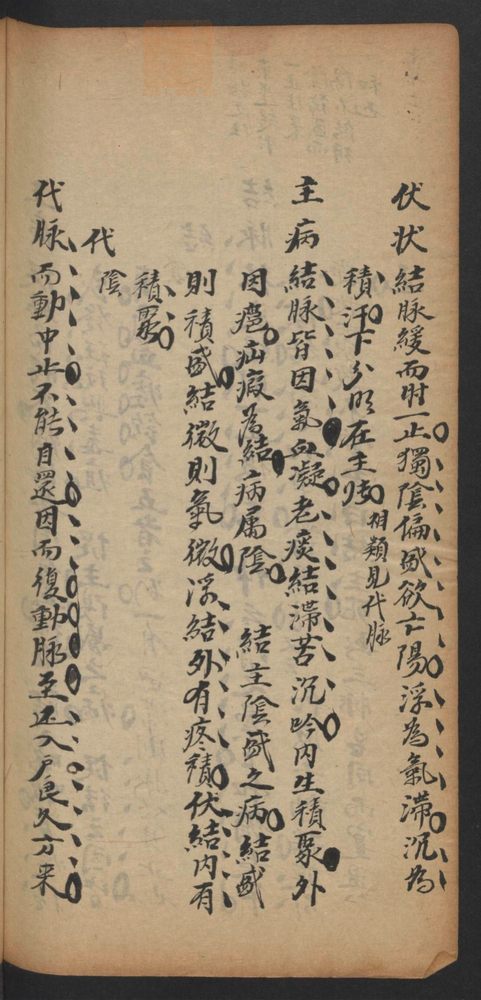 伏状 結脉緩而时一止獨陰偏盛欲亡陽浮為氣滯沉為
積汗下分明在主張 相類見代脉
主病 結脉皆因氣血凝老痰結滯苦沉吟内生積聚外
因癰疝瘕為結病属陰 結主陰盛之病結盛
則積盛結微則氣微浮結外有疼積伏結内有
積聚
代 陰
代脉而動中止不能自還因而復動脉至还入戶良久方来